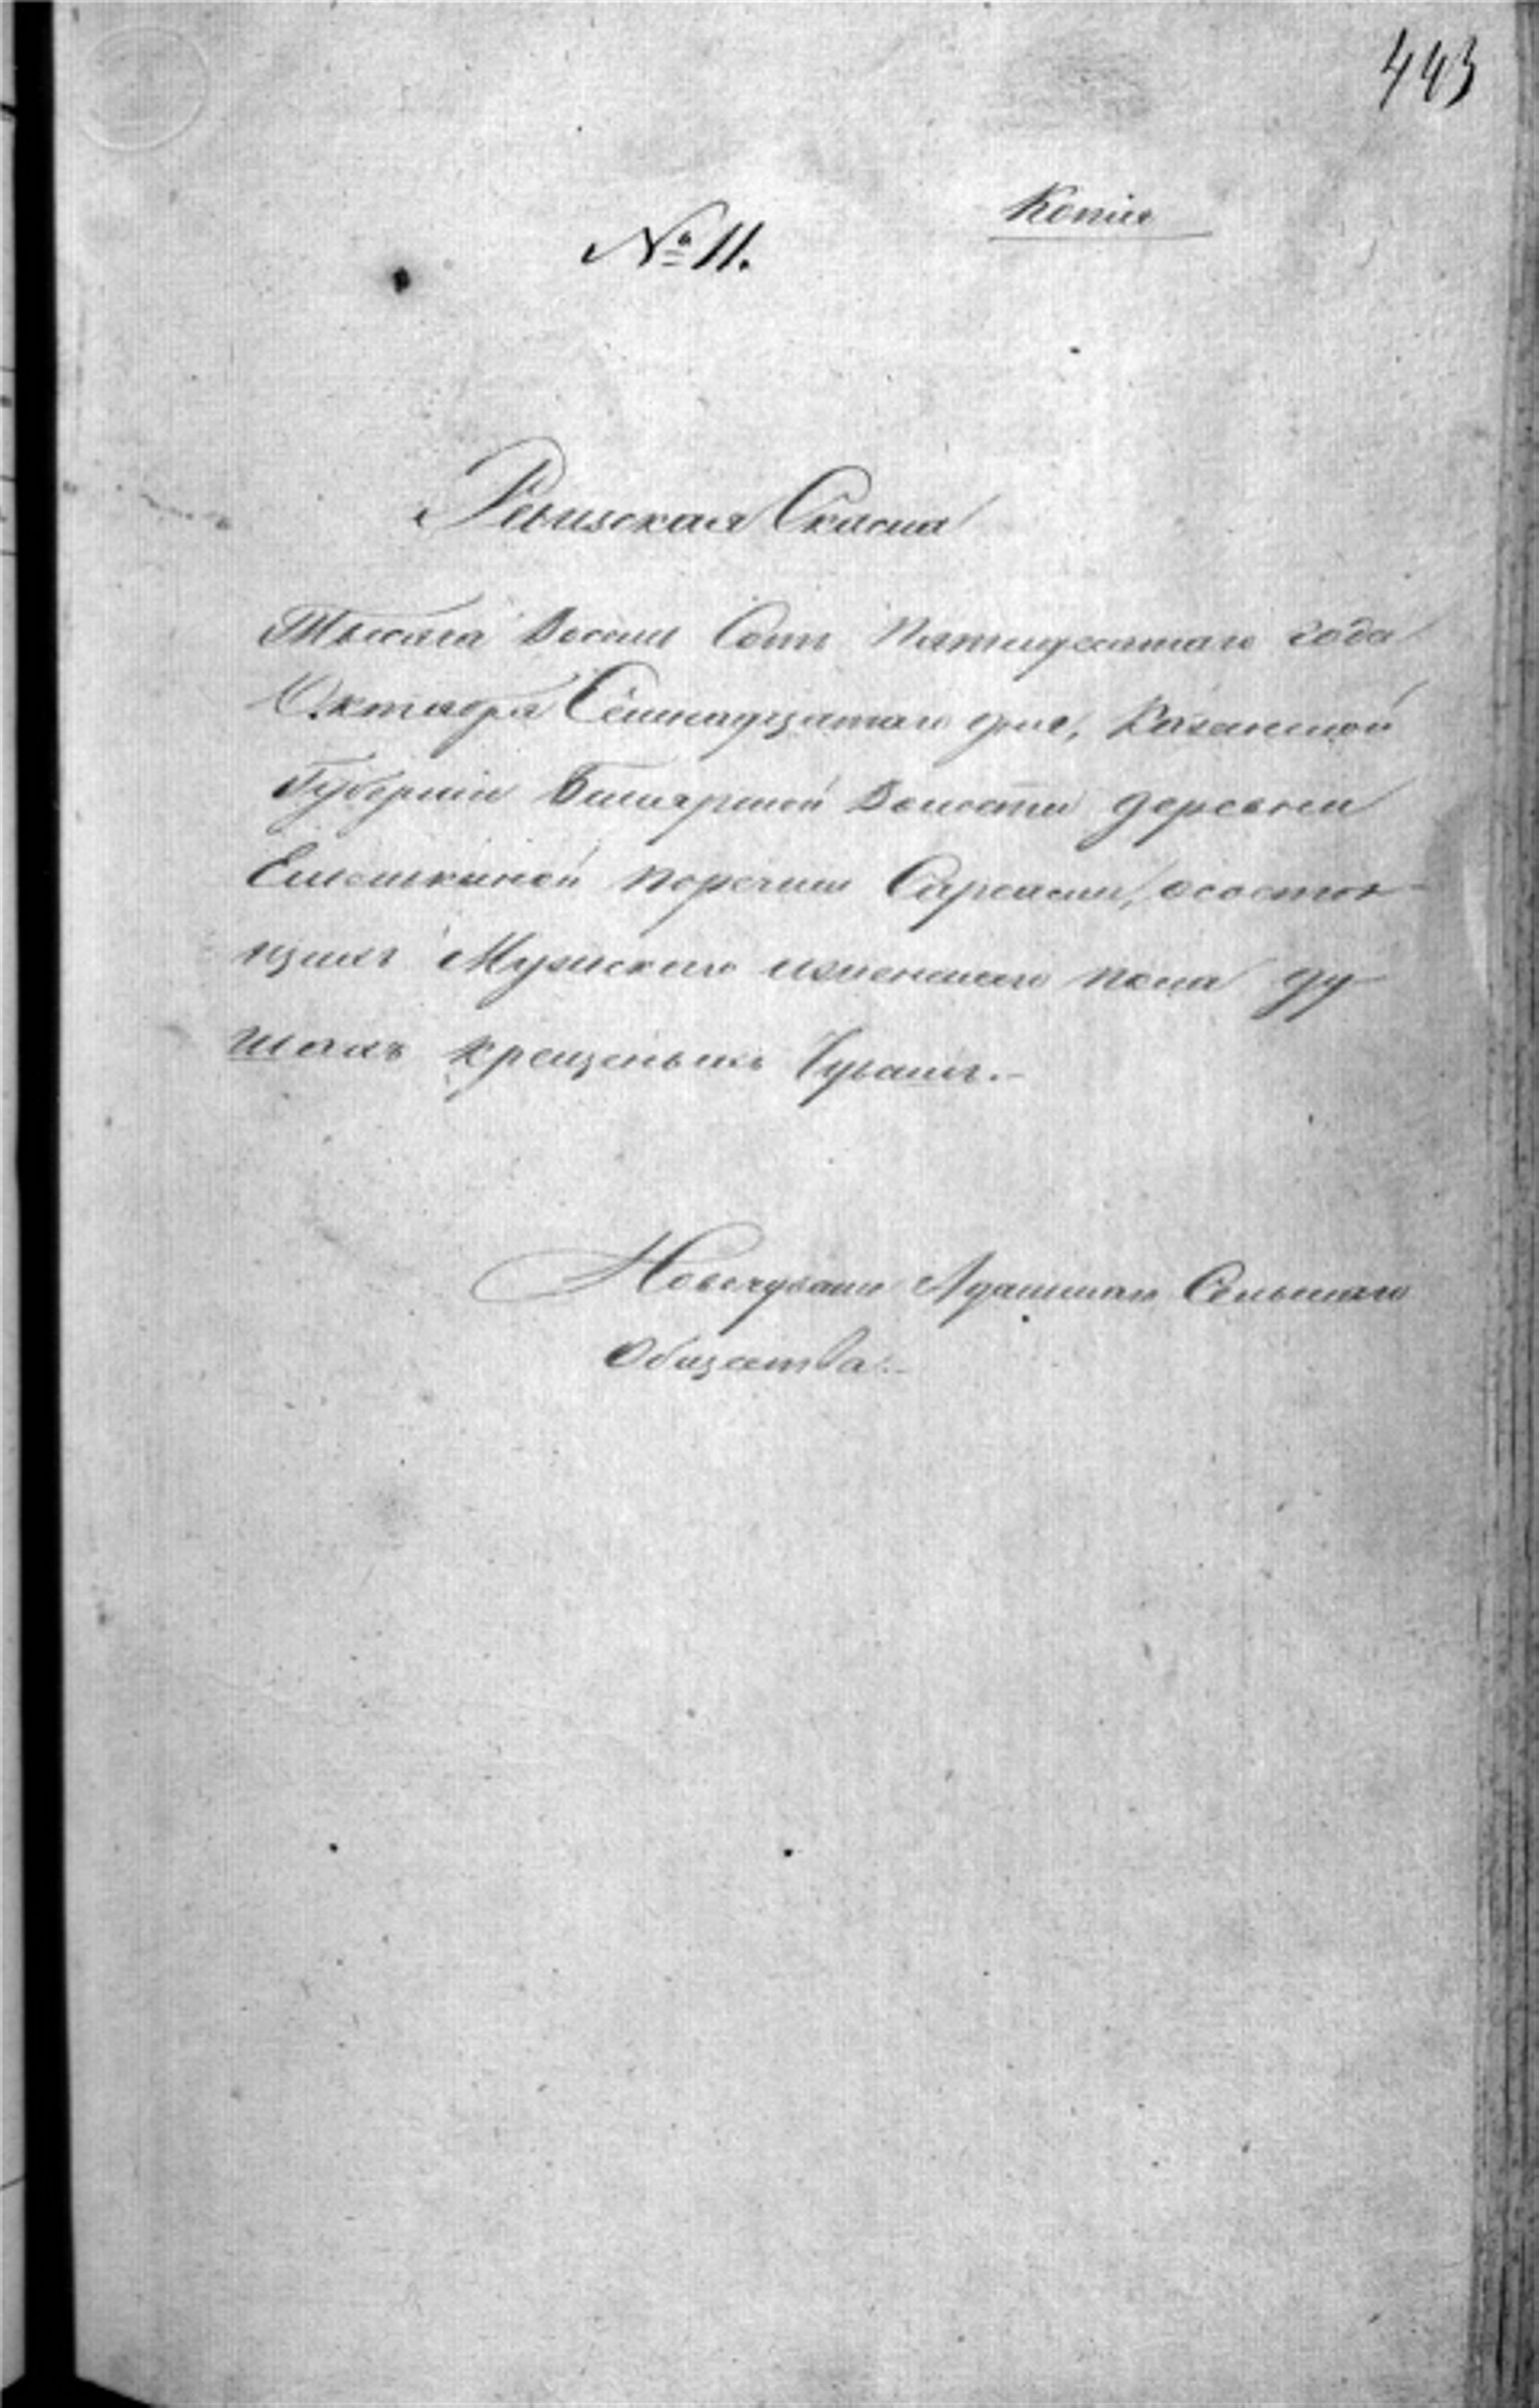 443
Копія
№ 11.
Ревизская Сказка
Тысяча Восемь Сотъ Пятидесятаго года
Октября Семнадцатаго дня, Казанской
Губерніи Билярской Волости деревни
Елошкиной поречки Сарсаши, осостоя-
щихъ Мужеского иженскаго пола ду-
шахъ крещеныхъ Чувашъ.-
Сельскаго
Общества.-